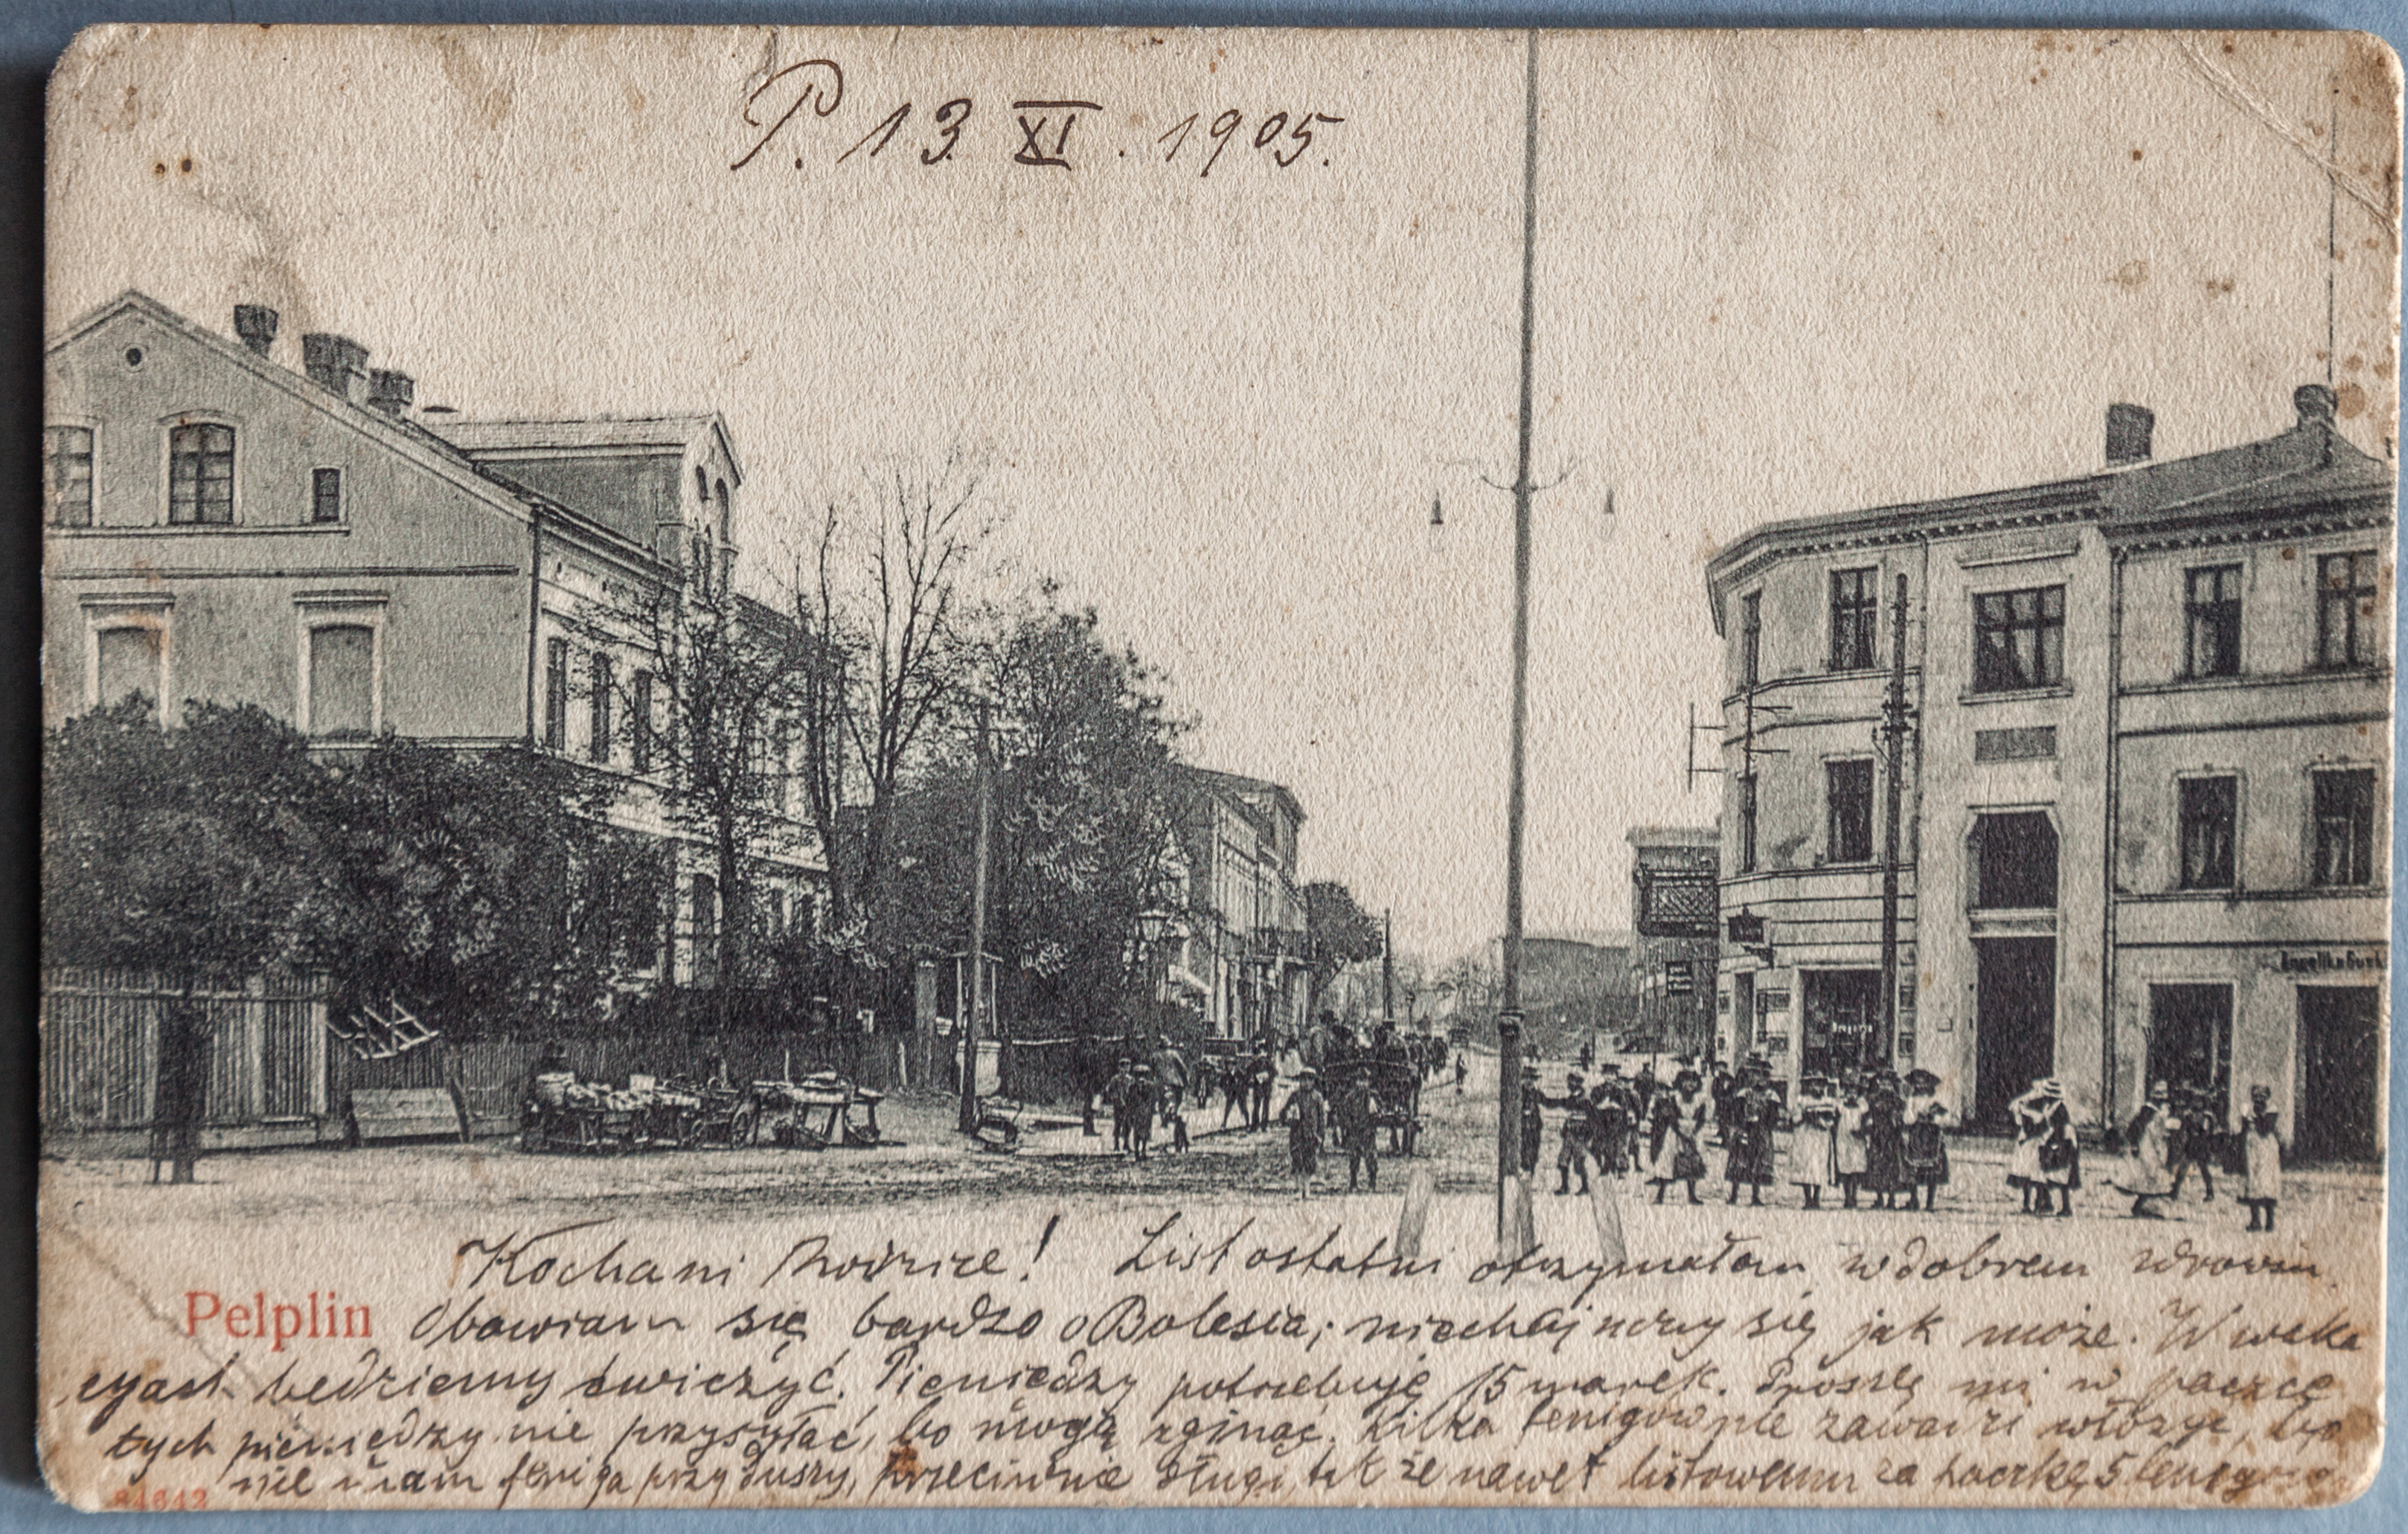 P. 13 XI. 1905.
Kochani Rodzice! List ostatni otrzymałem w dobrem zdrowiu.
Pelplin
Obawiam się bardzo o Bolesia; niechaj uczy się jak może. W waka
cyach będziemy ćwiczyć. Pieniędzy potrzebuję 15 marek. Proszę mi w paczce
tych pieniędzy nie przysyłać, bo mogą zginąć. Kilka fenigów nie zawadzi włożyć, bo
nie mam feniga przy duszy, przeciwnie długi, tak że nawet listowemu za paczkę 5 fenigów
84642